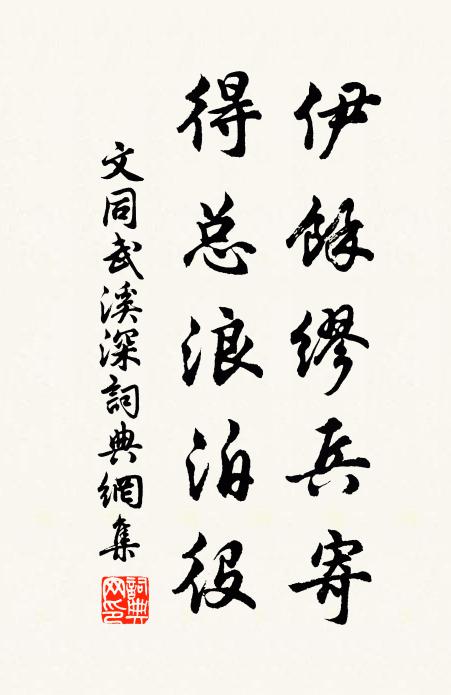 伊餘繆兵寄
得总浪泊役
文同武溪深詞典網集
詞典网印